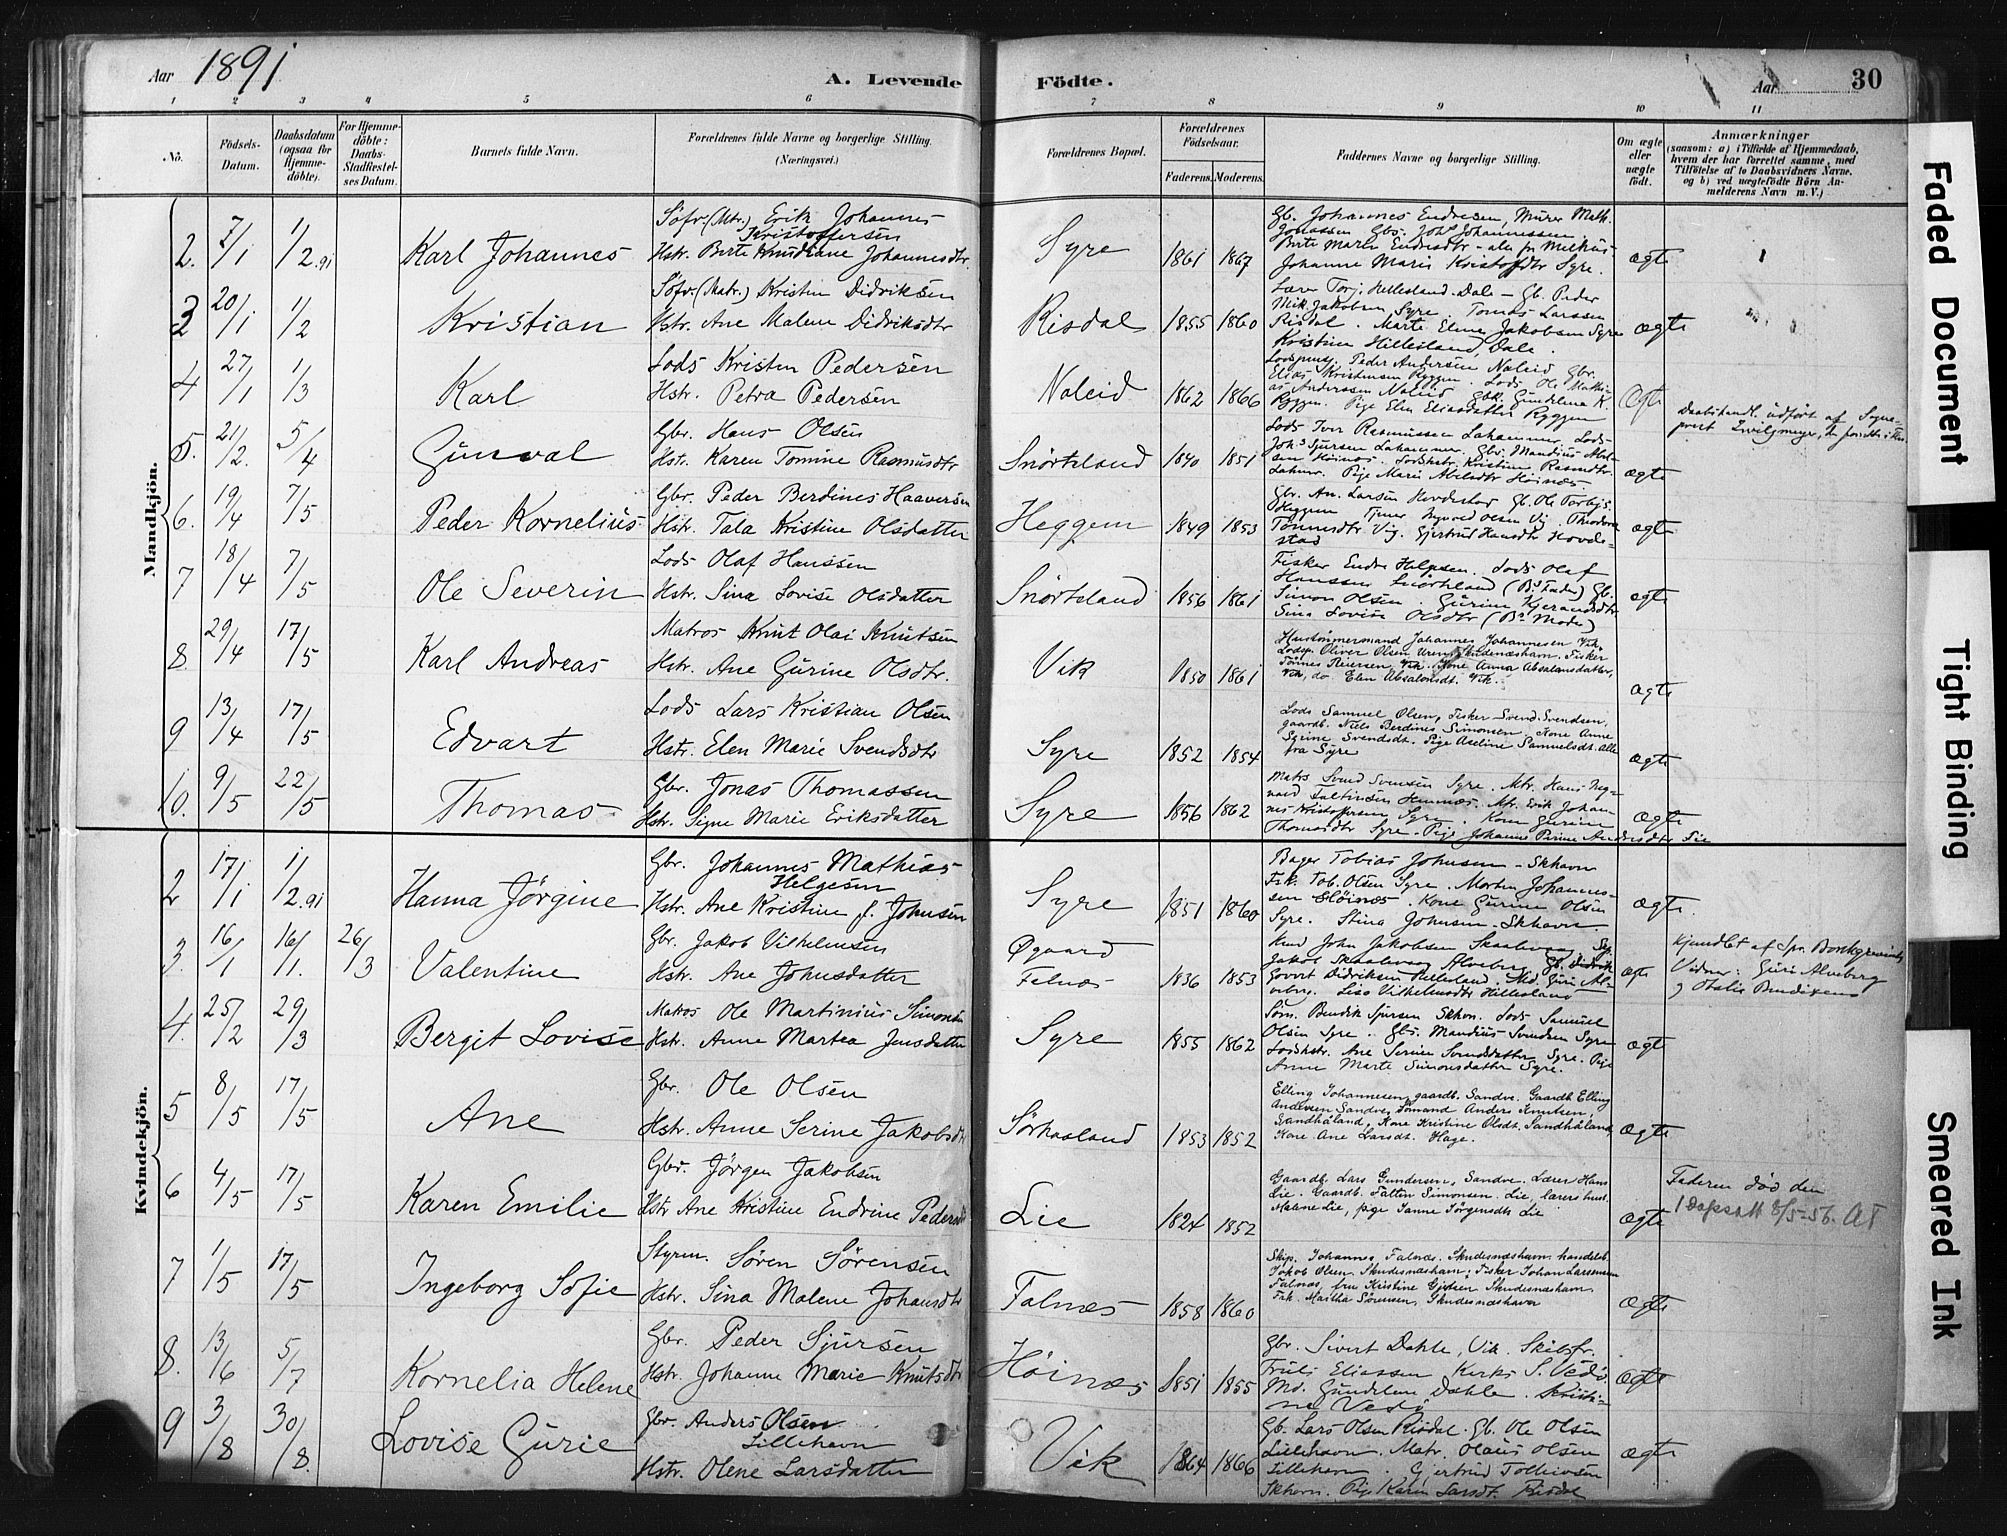 Aar 1891
A. Levende Födte.
Aar
30
1 2 3 4 5 6 7 8 9 10 11
No.
Födsels-Datum.
Daabsdatum (ogsaa for Hjemme-döbte).
For Hjemme-döbte: Daabs-Stadfæstel-ses Datum.
Barnets fulde Navn.
Forældrenes fulde Navne og borgerlige Stilling. (Næringsvei.)
Forældrenes Bopæl.
Forældrenes Födselsaar.
Faderens. Moderens.
Faddernes Navne og borgerlige Stilling.
Om ægte eller uægte födt.
Anmærkninger
(saasom: a) i Tilfælde af Hjemmedaab, hvem der har forrettet samme, med Tilföielse af to Daabsvidners Navne, og b) ved uægtefödte Börn An-melderens Navn m. V.)
Mandkjön.
2. 7/1 1/2 91 Karl Johannes
Söfv. (Mtr.) Erik Johannes
Kristoffersen
Hstr. Berte Knudiane Johannesdtr.
Syre 1861 1867
Gb. Johannes Endresen,
Johanne Marie Kristofdtr Syre.
ægte
3 20/1 1/2 Kristian
Söfv. (Matr.) Kristen Didriksen
Hstr. Ane Malene Didriksdtr
Risdal 1855 1860
Lærer Torj. Hillesland. Dale - Gb. Peder
Mik. Jakobsen Syre. Tomas Larssen
Risdal. Marte Elene Jakobsen Syre
Kristine Hillesland, Dale.
ægte
4 27/1 1/3 Karl
Lods Kristen Pedersen
Hstr. Petra Pedersen
Naleid 1862 1866
Peder Andersen Naleid Gbr.
Elias Kristensen Ryggen. Lods Ole Mathi-
as Andersen Naleid Gbk. Gundelena K.
Ryggen. Pige Elen Eliasdatter Ryggen
Ægte
Daabshandl. udfört af Sogne-
5. 21/2. 5/4 Gunval
Gbr. Hans Olsen
Hstr. Karen Tomine Rasmusdtr
Snörteland 1840 1851
Lods Iver Rasmussen Lahammer. Lods
Johs Sjursen Lahammer. Gbr. Mandius Abel-
sen Höinæs. Lodskstr. Kristine Rasmdtr.
Lahmr. Pige Marie Abelsdtr Höinæs
ægte
6. 19/4 7/5 Peder Kornelius
Gbr. Peder Berdines Haaversen
Hstr. Tala Kristine Olsdatter
Heggem 1849 1853
Gbr. An. Larsen Hovdestad Gb. Ole Torbjs.
Heggem Tjener Ingvald Olsen Vig. Theodora
Tönnesdtr Vig. Gjertrud Hansdtr Hovde-
stad
ægte
7 18/4 7/5 Ole Severin
Lods Olaf Hanssen
Hstr. Sina Lovise Olsdatter
Snörteland 1856 1861
Fisker Endre Helgesen. Lods Olaf
Hanssen Snörteland (Bs Fader) Gb.
Simon Olsen. Gurine Kjerandsdtr
Sina Lovise Olsdtr (Bs Moder)
ægte
8. 29/4 17/5 Karl Andreas
Matros Knut Olai Knutsen
Hstr. Ane Gurine Olsdtr.
Vik 1850 1861
Hustömmermand Johannes Johannesen Vik,
Lodsp. Oliver Olsen Skudenæshavn, Fisker
Tönnes Reiersen, Vik. Kone Anna Absalonsdatter,
Vik, do Elen Absalonsdt. Vik.
ægte
9 13/4 17/5 Edvart
Lods Lars Kristian Olsen
Hstr. Elen Marie Svendsdtr
Syre 1852 1854
Lods Samuel Olsen, Fisker Svend Svendsen,
gaardb. Niels Berdines Simonsen, Kone Anne
Serine Svendsdt. Pige Aseline Samuelsdt. Alle
fra Syre
ægte
10. 9/5 22/5 Thomas
Gbr. Jonas Thomassen
Hstr. Signe Marie Eriksdatter
Syre 1856 1862
Matrs Svend Svensen Syre. Mtr. Hans Ing-
vald Faltinsen Hemnæs. Mtr. Erik Johan-
nes Kristoffersen Syre. Kone Gurine
Thomasdtr Syre. Pige Johanne Perine Andersdtr Lie
ægte
Kvindekjön.
2 17/1 1/2 91 Hanna Jörgine
Gbr. Johannes Mathias
Helgesen
Hstr. Ane Kristine f. Johnsen
Syre 1851 1860
Bager Tobias Johnsen - Skhavn
Fsk. Tob. Olsen Syre. Morten Johannes-
sen Höinæs. Kone Gurine Olsen
Syre. Stina Johnsen. Skhavn
ægte.
3. 16/1 16/1. 26/3 Valentine
Gbr. Jakob Vilhelmsen
Hstr. Ane Johnsdatter
Øgaard
Falnæs 1836 1853
John Jakobsen
Govert Didriksen Hillesland. Md. Guri Al-
veberg. Lise Vilhelmsdtr Hillesland
ægte
Hjemdbt af Spr. Borchgrevink
Vidner: Guri Alveberg
og Otalie Bendixens
4. 25/2 29/3 Bergit Lovise
Matros Ole Martinius Simonsen
Hstr. Anne Martea Jensdatter
Syre 1855 1862
Söm. Bendik Sjursen Skhvn. Lods Samuel
Olsen Syre. Gbr. Mandius Svendsen Syre
Lodskstr. Ane Serine Svendsdatter Syre. Pige
Anne Marte Simonsdatter Syre.
ægte
5 8/5 17/5 Ane
Gbr. Ole Olsen
Hstr. Anne Serine Jakobsdtr
Sörhaaland 1853 1852
Elling Johannesen gaardb. Sandve. Gaardb Elling
Andersen Sandve, Sömand Anders Knutsen,
Sandhåland, Kone Kristine Olsdt. Sandhåland,
Kone Ane Larsdt. Hage.
ægte
6 4/5 17/5 Karen Emilie
Gbr. Jörgen Jakobsen
Hstr Ane Kristine Endrine Pedersdtr
Lie 1824 1852
Gaardb. Lars Gundersen, Sandve. Lærer Hans
Lie. Gaardb. Faltin Simonsen. Lie, lærers hust.
Malene Lie, pige Sanne Jörgensdt. Lie
ægte
Faderen död den
8/5-56. AT
7 1/5 17/5 Ingeborg Sofie
Styrm. Sören Sörensen
Hstr. Sina Malene Johansdtr
Falnæs 1858 1860
Skip. Johannes Falnæs. Skudesnæshavn. handelsb.
Jakob Olsen. Skudesnæshavn, Fisker Johan Larsensen
Falnæs, fru Kirstine Skudesnæshavn
Frk. Martha Sörensen, Skudesnæshavn
ægte
8. 13/6 5/7 Kornelia Helene
Gbr. Peder Sjursen
Hstr. Johanne Marie Knutsdtr
Höinæs 1851 1855
Gbr. Sivert Dahle, Vik. Skibsfr.
Truls Eliassen Kirks. S. Vedö.
Md. Gundelene Dahle. Kristi-
ne Vedö
ægte
9 3/8 30/8. Lovise Gurie
Gbr. Anders Olsen
Lillehavn
Hstr. Olene Larsdatter
Vik 1864 1866
Gb. Lars Olsen Risdal. Gb. Ole Olsen
Lillehavn. Matr. Olaus Olsen
Lillehavn. Gjertrud Tollevsen
Skhavn. Pige Karen Larsdt. Risdal
ægte
Faded Document
Tight Binding
Smeared Ink